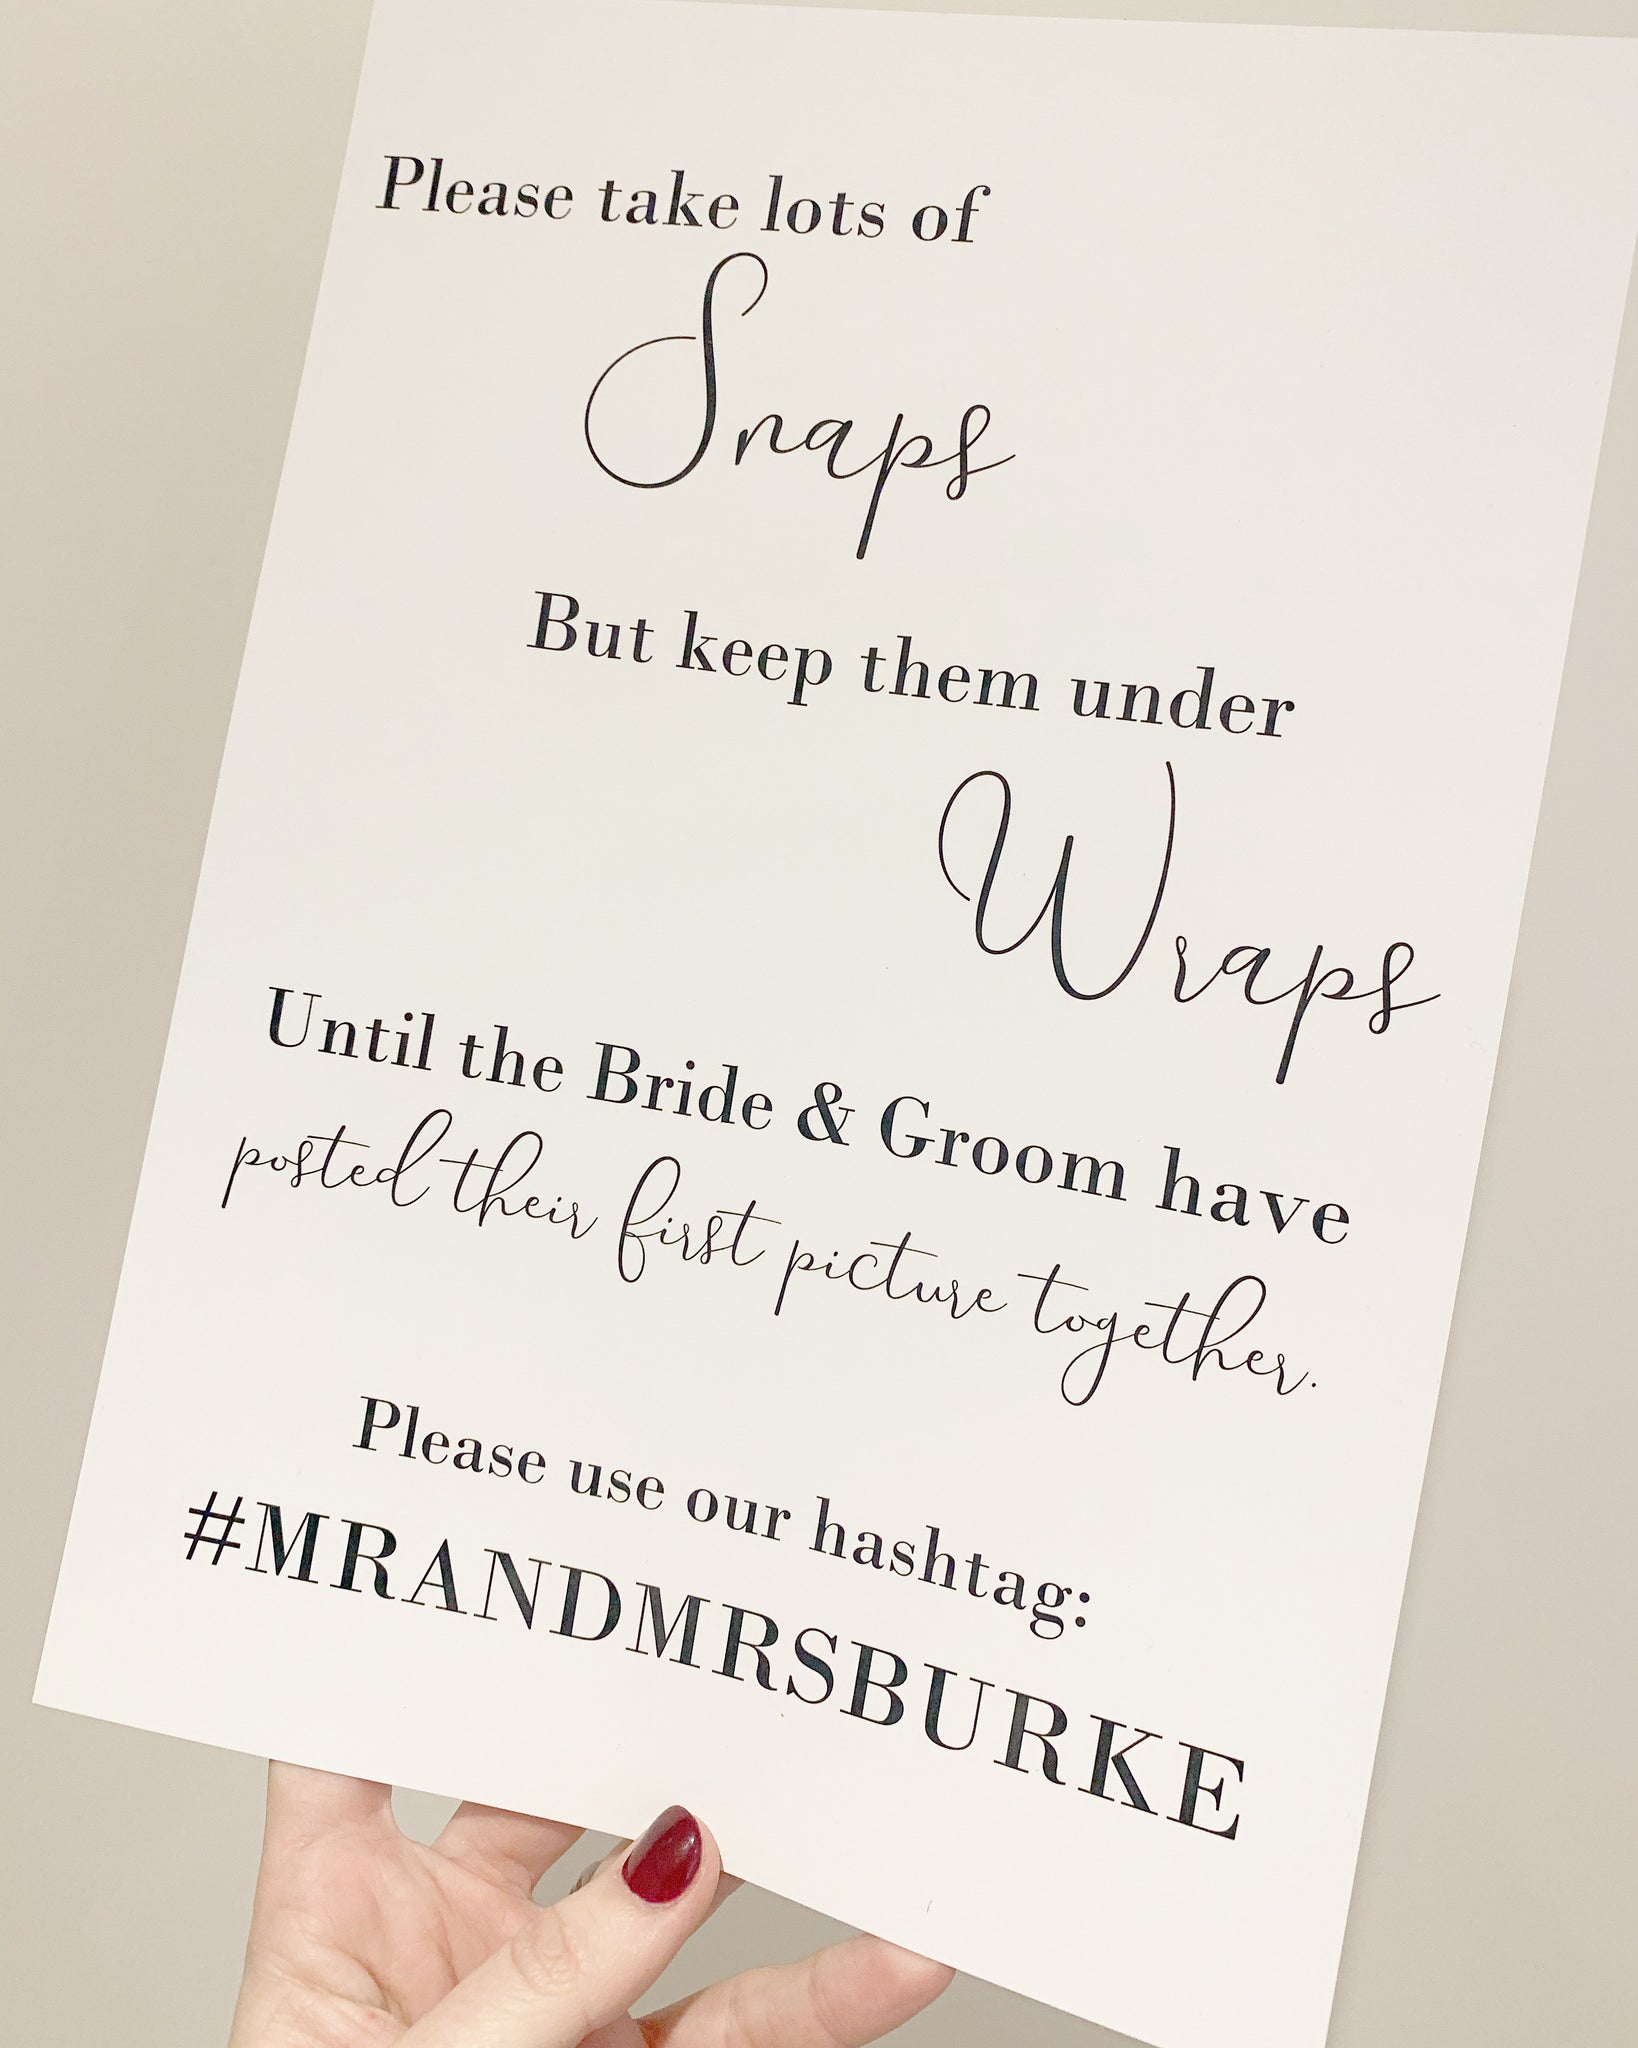 Please take lots of
Snaps
But keep them under
Wraps
Until the Bride & Groom have
posted their first picture together.
Please use our hashtag:
#MRANDMRSBURKE